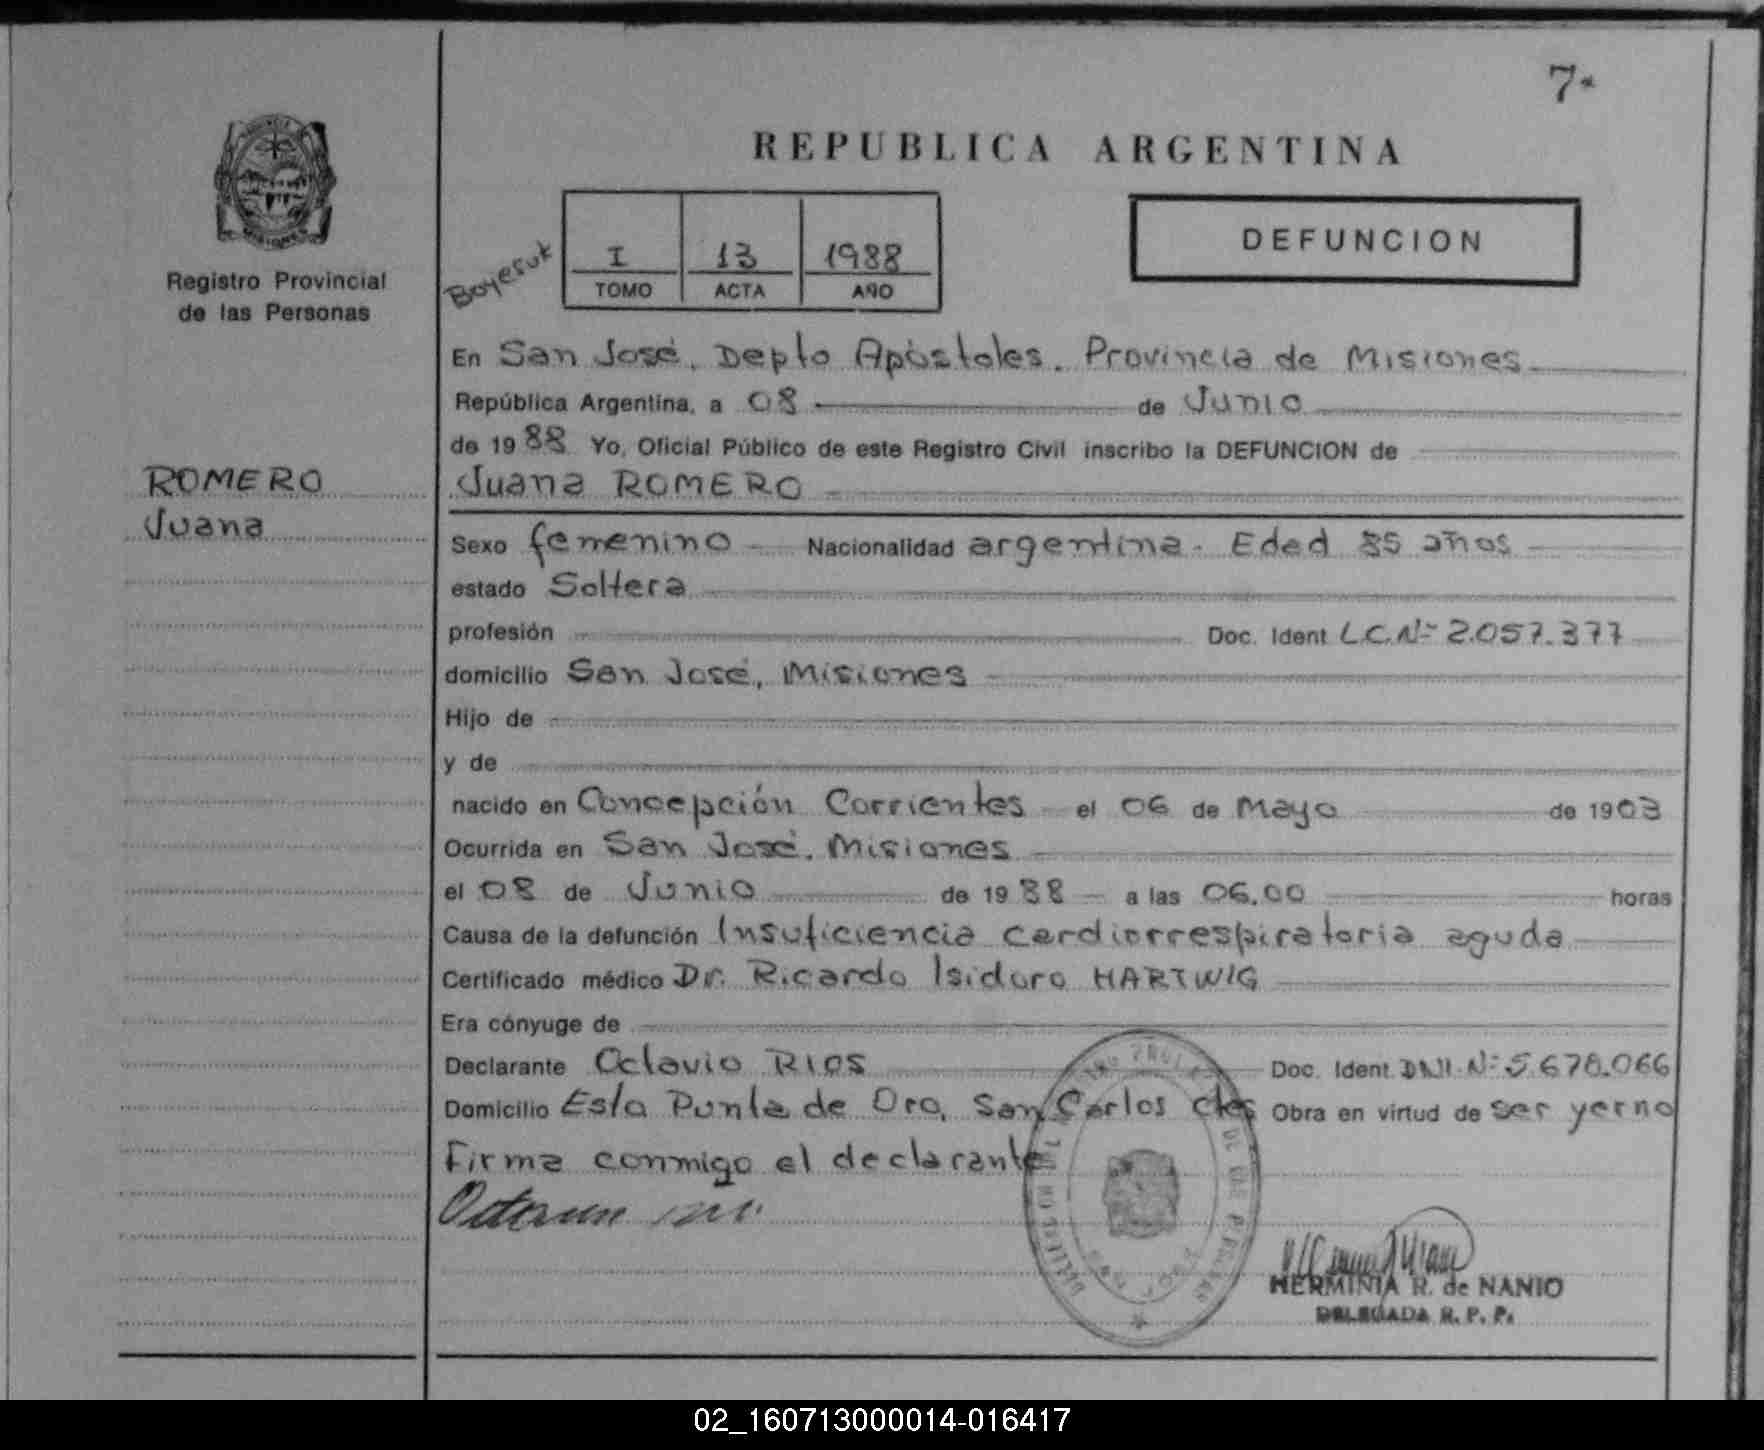 7
REPUBLICA ARGENTINA
DEFUNCION
I 13 1988
TOMO ACTA AÑO
MISIONES
Registro Provincial
de las Personas
En San José, Depto Apóstoles. Provincia de Misiones
República Argentina, a 08 de Junio
de 1988 Yo, Oficial Público de este Registro Civil inscribo la DEFUNCION de
ROMERO
Juana
Juana ROMERO
Sexo femenino Nacionalidad argentina. Edad 85 años
estado Soltera
profesión Doc. Ident L.C.Nº 2.057.377
domicilio San José, Misiones
Hijo de
y de
nacido en Concepción Corrientes el 06 de Mayo de 1903
Ocurrida en San José. Misiones
el 08 de Junio de 1988 a las 06.00 horas
Causa de la defunción Insuficiencia cardiorrespiratoria aguda
Certificado médico Dr. Ricardo Isidoro HARTWIG
Era cónyuge de
Declarante Octavio RIOS Doc. Ident. DNI Nº 5.678.066
Domicilio Esta Punta de Oro, San Carlos Ctes Obra en virtud de ser yerno
Firma conmigo el declarante
HERMINIA R. de NANIO
DELEGADA R. P. P.
02_160713000014-016417